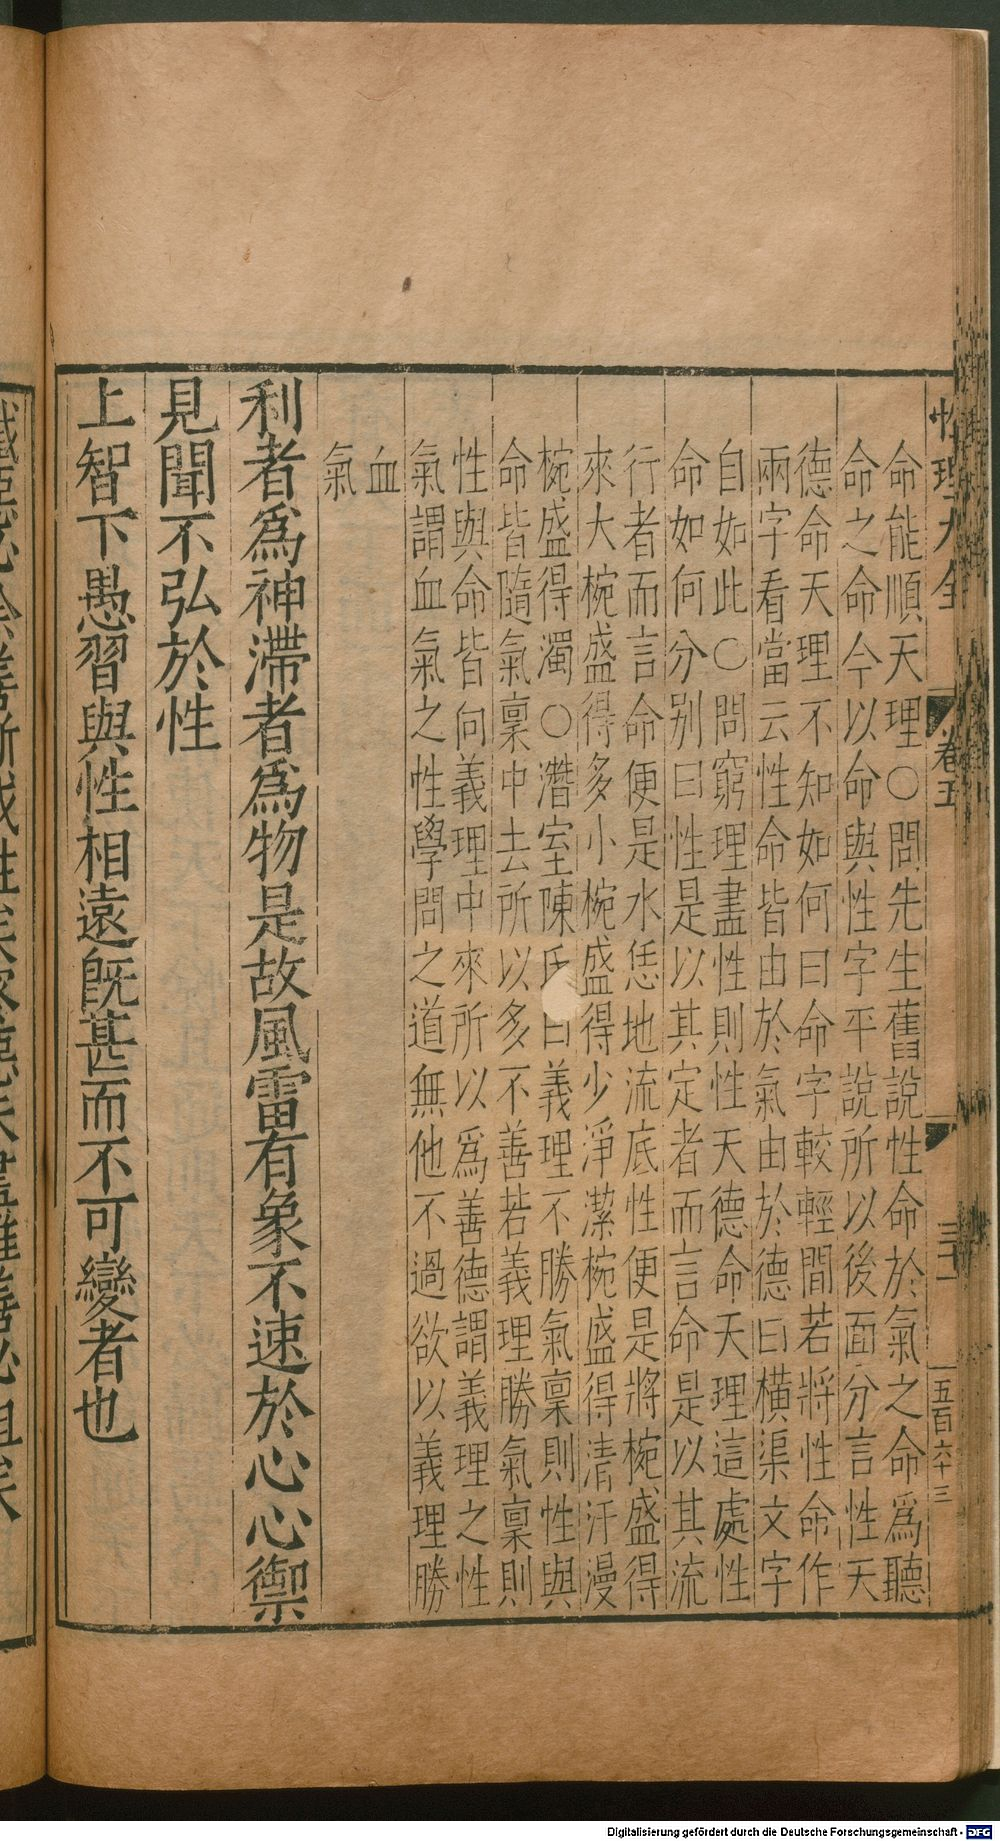 性理大全
卷五
三十一
五百六十三
命能順天理○問先生舊說性命於氣之命爲聽
命之命今以命與性字平說所以後面分言性天
德命天理不知如何曰命字較輕間若將性命作
兩字看當云性命皆由於氣由於德曰橫渠文字
自如此○問窮理盡性則性天德命天理這處性
命如何分別曰性是以其定者而言命是以其流
行者而言命便是水恁地流底性便是將椀盛得
來大椀盛得多小椀盛得少淨潔椀盛得清汙漫
椀盛得濁○潛室陳氏曰義理不勝氣稟則性與
命皆隨氣稟中去所以多不善若義理勝氣稟則
性與命皆向義理中來所以爲善德謂義理之性
氣謂血氣之性學問之道無他不過欲以義理勝
血
氣
利者爲神滯者爲物是故風雷有象不速於心心禦
見聞不弘於性
上智下愚習與性相遠旣甚而不可變者也
Digitalisierung gefördert durch die Deutsche Forschungsgemeinschaft - DFG